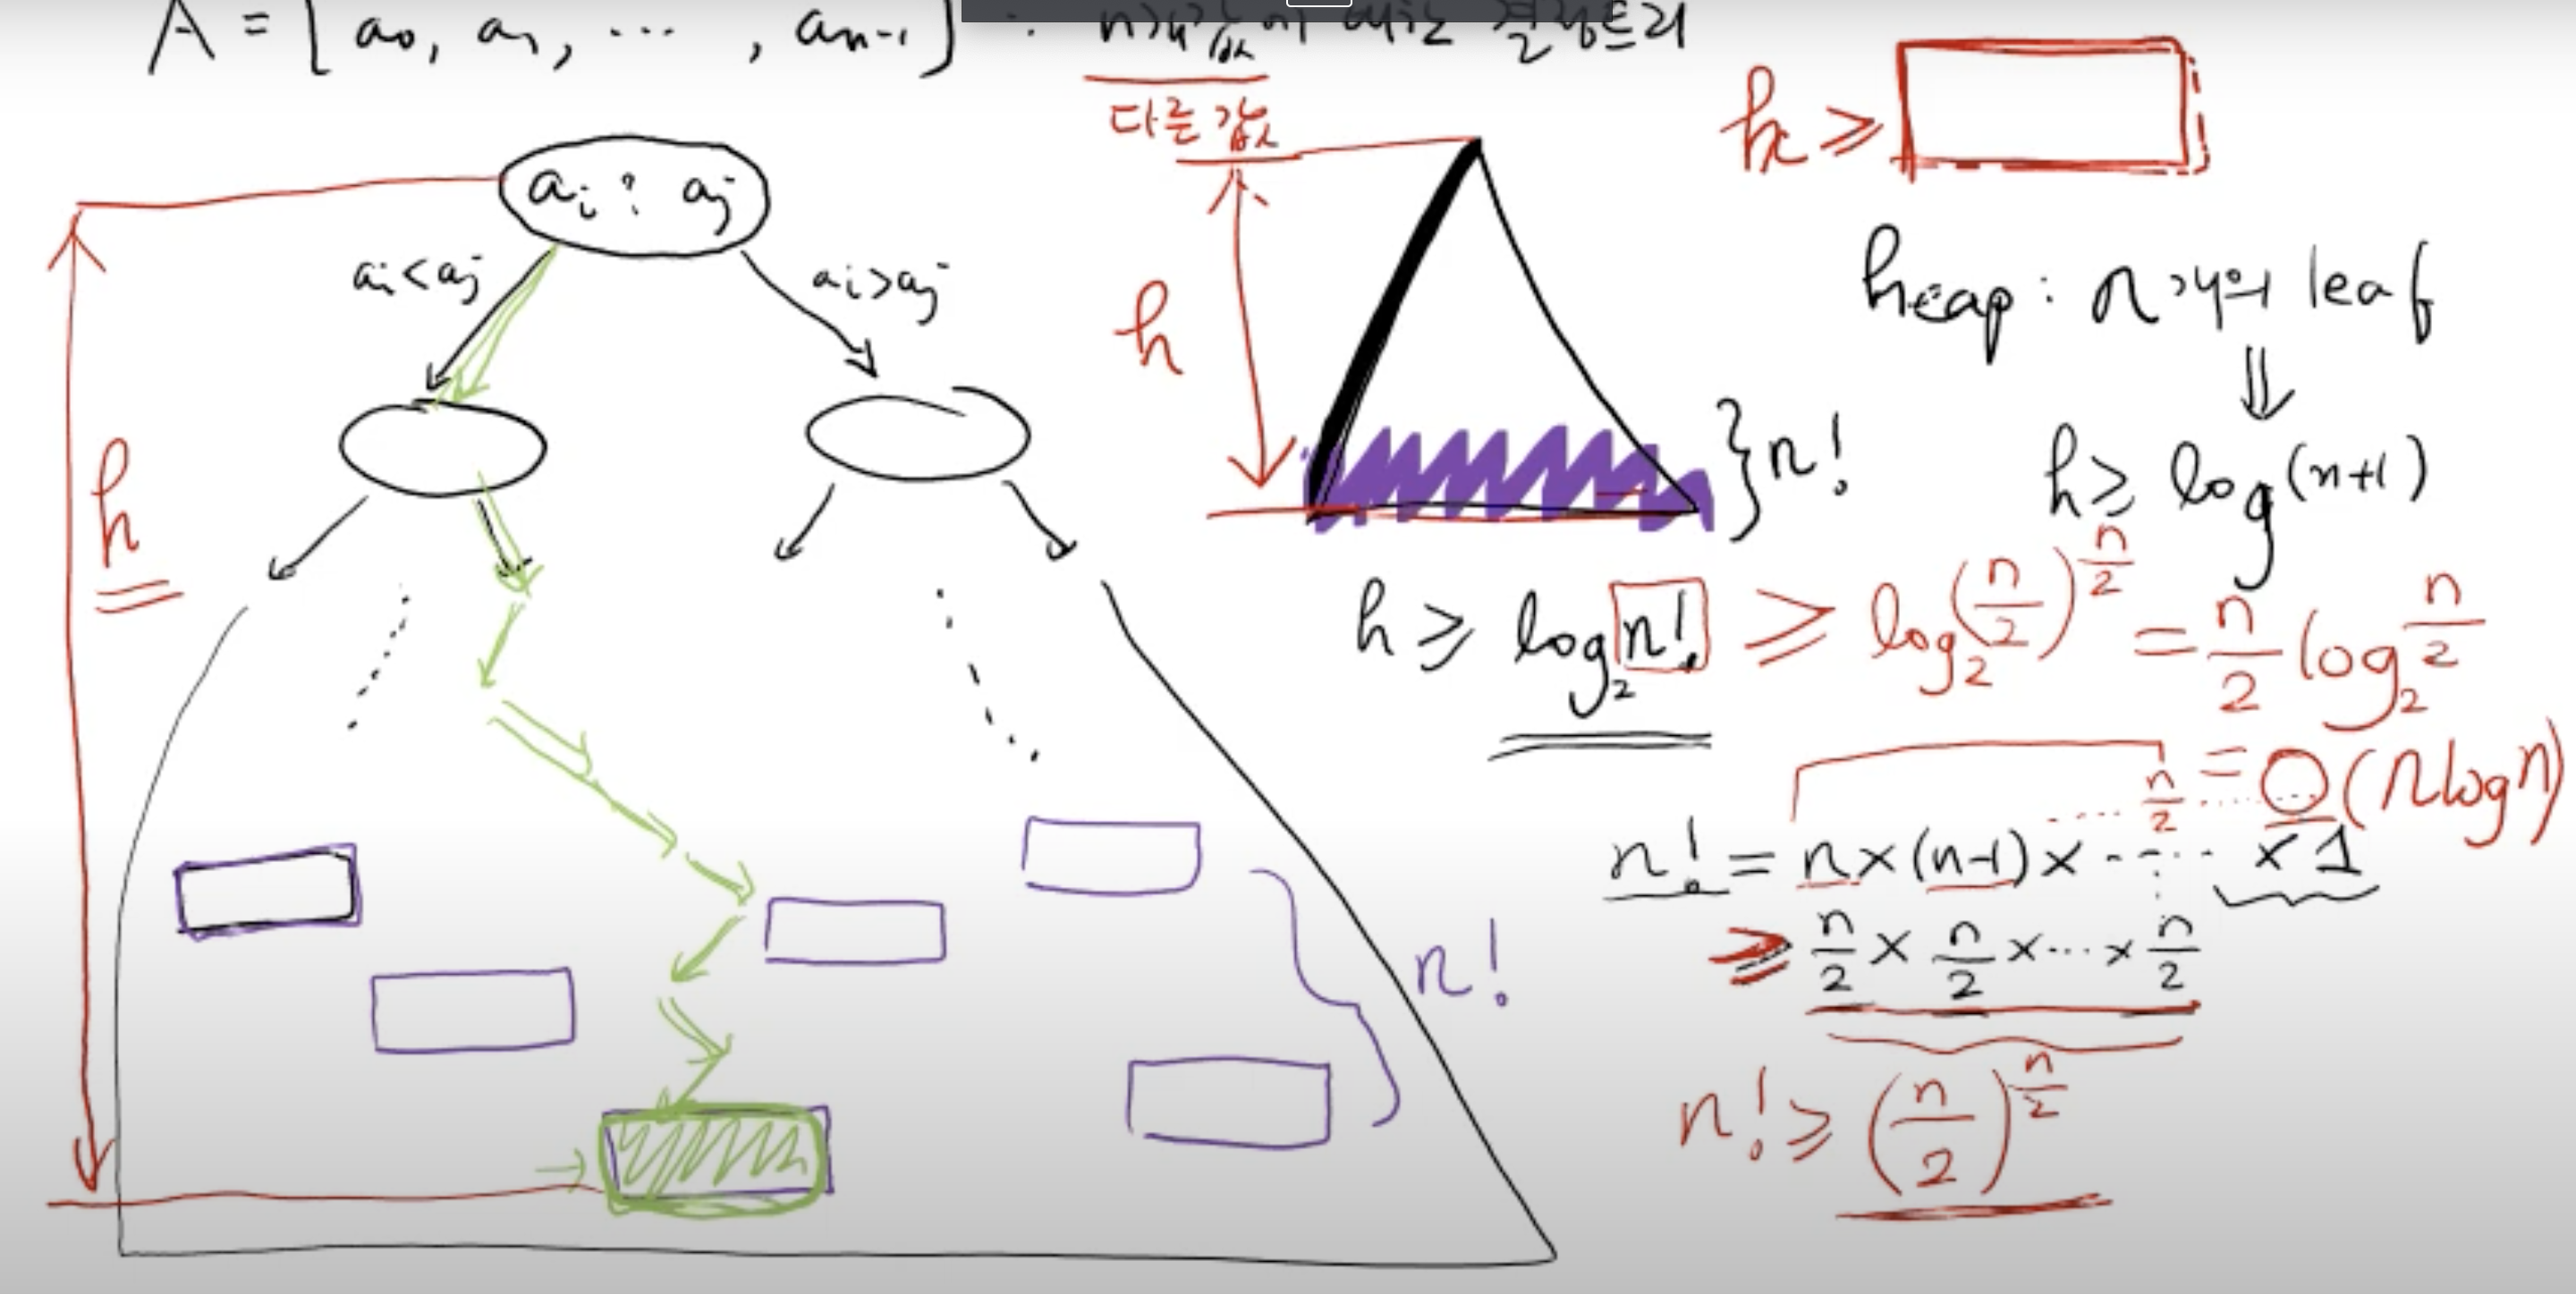 A = [ a₀, a₁, ··· , aₙ₋₁ ] : n개 값에 대한 결정트리
다른 값
h ≥
aᵢ : aⱼ
aᵢ < aⱼ
aᵢ > aⱼ
h
h
} n!
heap : n개의 leaf
⇓
h ≥ log(n+1)
h ≥ log₂ n! ≥ log₂ (n/2)^(n/2) = n/2 log₂ n/2
= O(n log n)
n/2
n! = n × (n-1) × ····· × 1
≥ n/2 × n/2 × ··· × n/2
n! ≥ (n/2)^(n/2)
n!